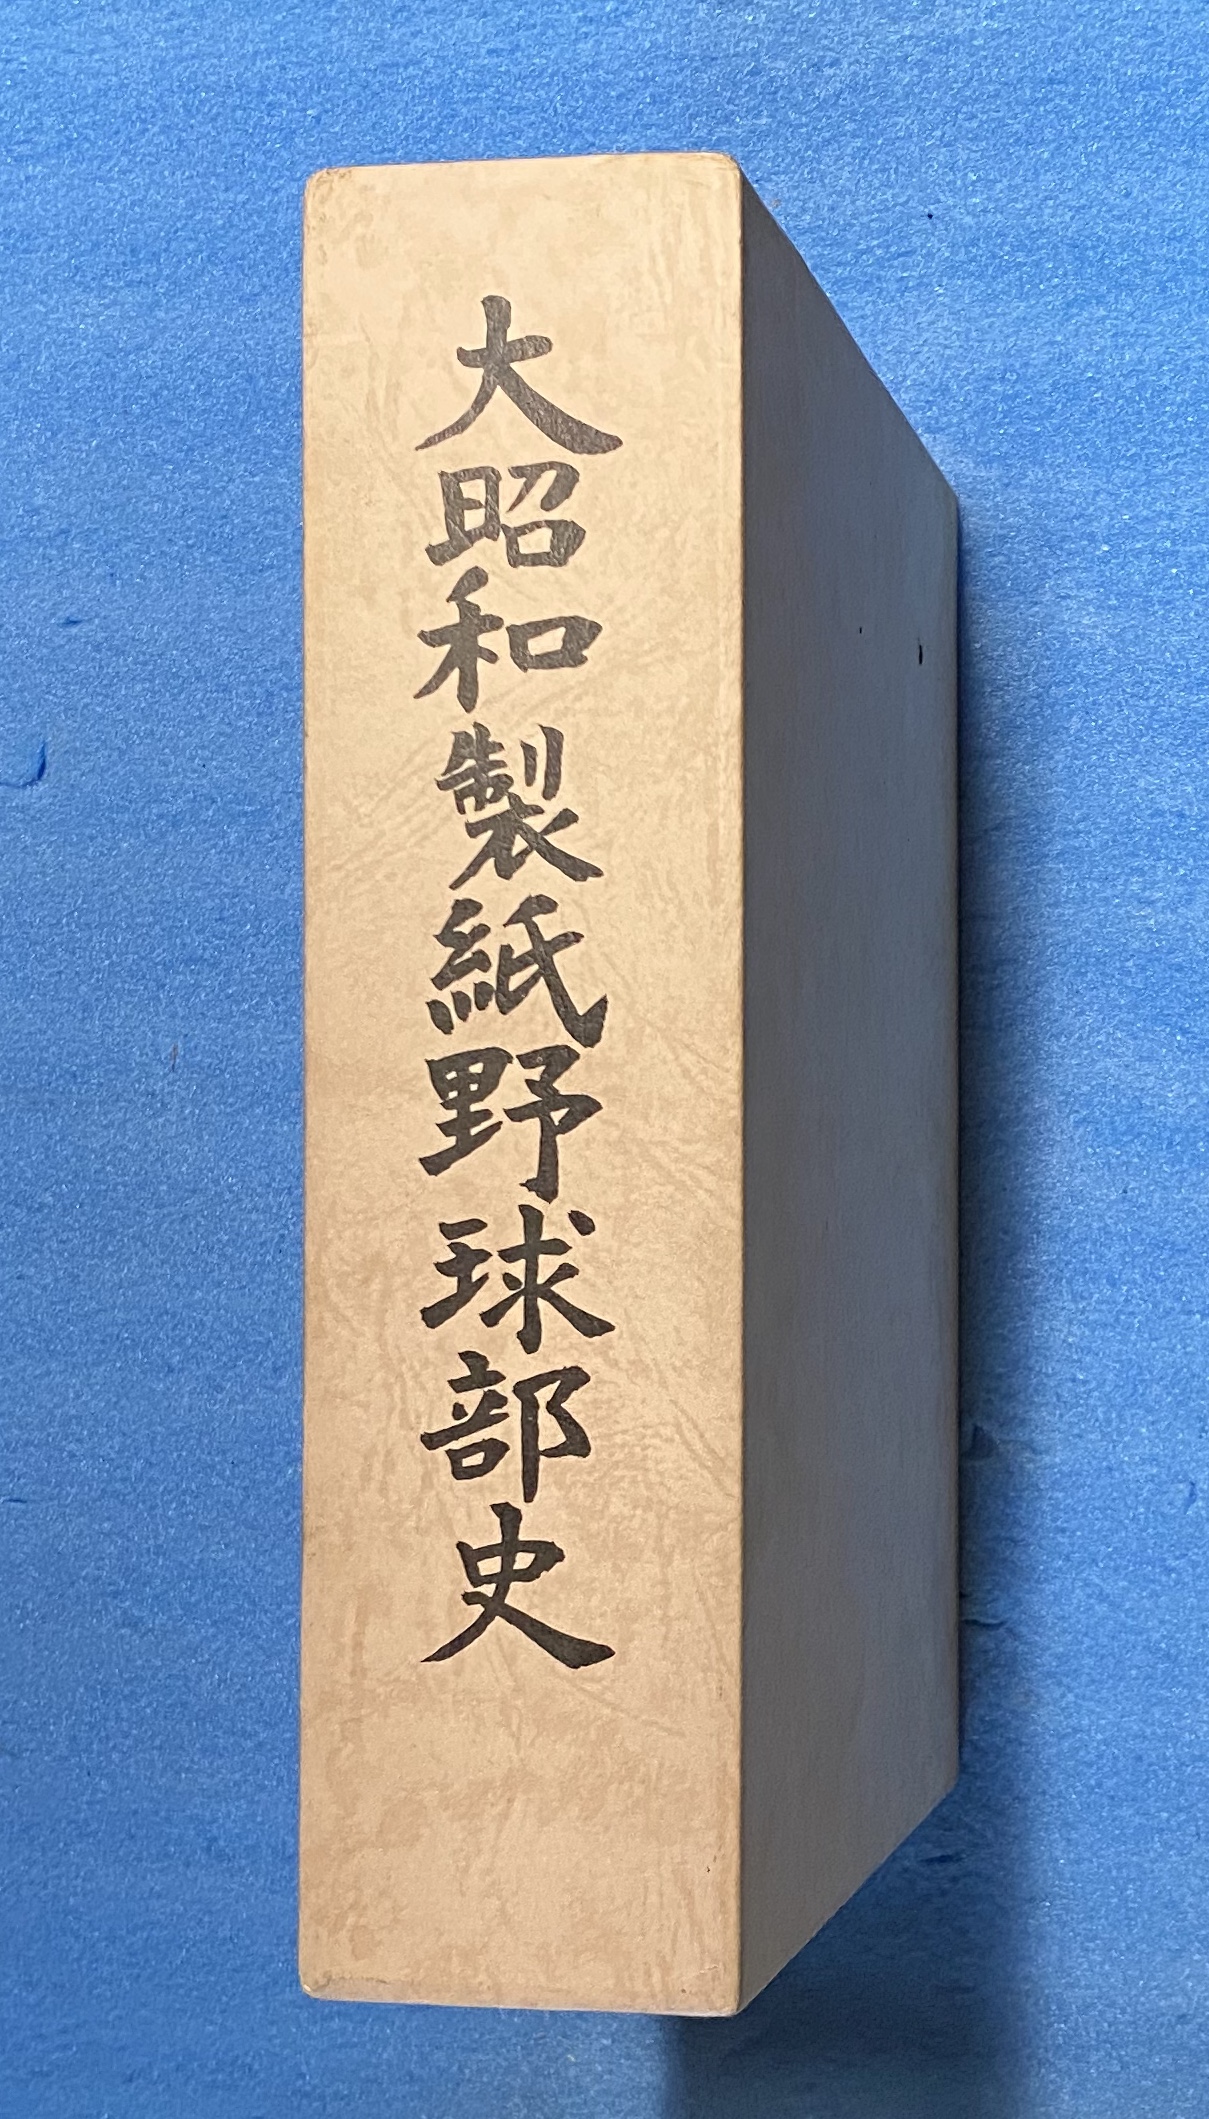 大昭和製紙野球部史